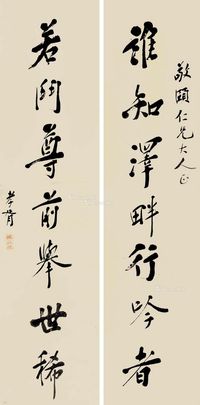 敬頤仁兄大人正
誰知澤畔行吟者
若鬥尊前舉世稀